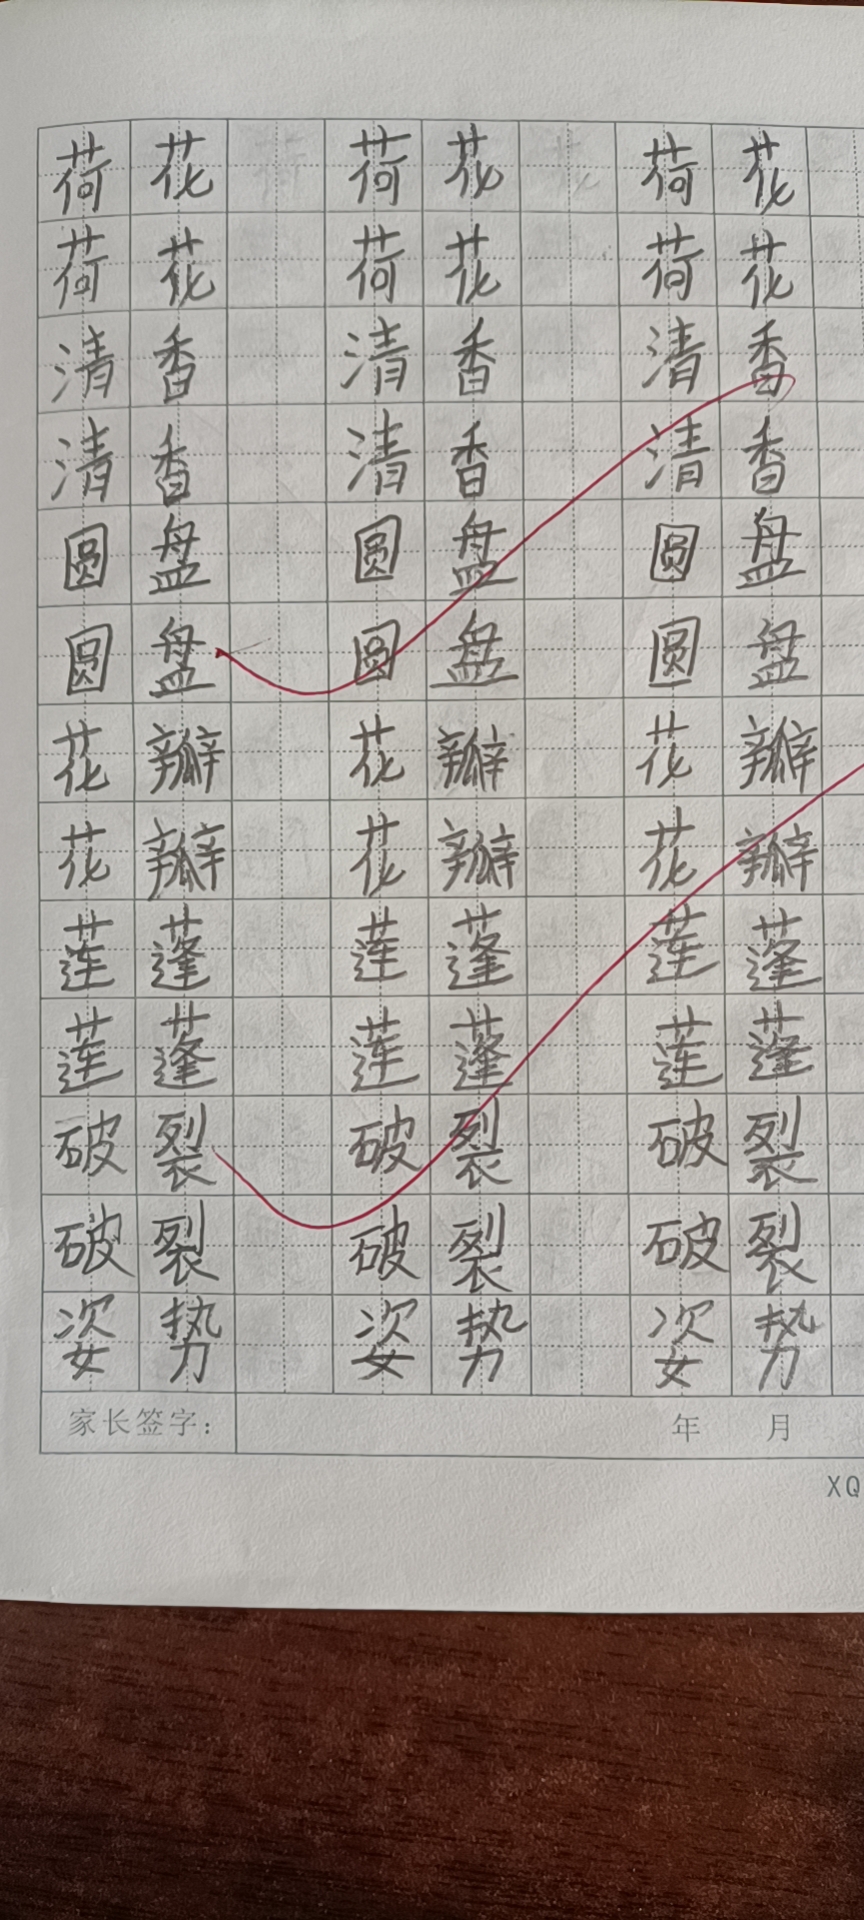 荷花 荷花 荷花
荷花 荷花 荷花
清香 清香 清香
清香 清香 清香
圆盘 圆盘 圆盘
圆盘 圆盘 圆盘
花瓣 花瓣 花瓣
花瓣 花瓣 花瓣
莲蓬 莲蓬 莲蓬
莲蓬 莲蓬 莲蓬
破裂 破裂 破裂
破裂 破裂 破裂
姿势 姿势 姿势
家长签字: 年 月
XQ